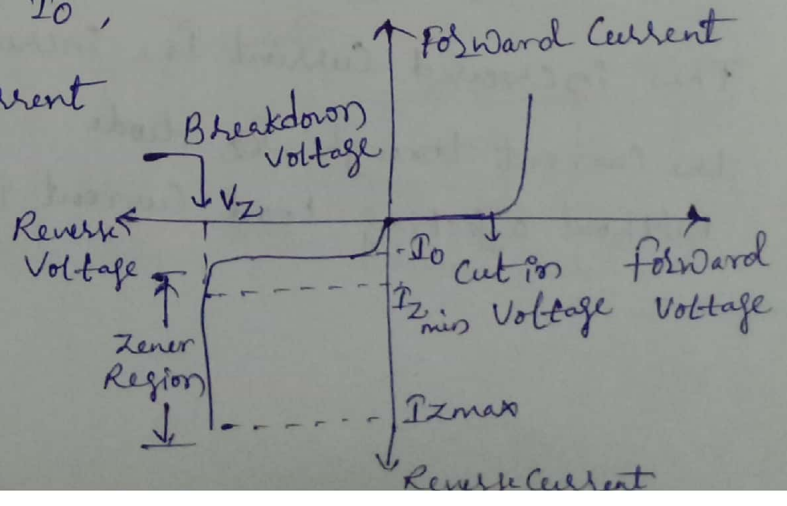 I0 ,
Forward Current
rrent
Breakdown
Voltage
VZ
Reverse
Voltage
-I0
Cut in
Voltage
forward
Voltage
IZ min
Zener
Region
IZmax
Reverse Current